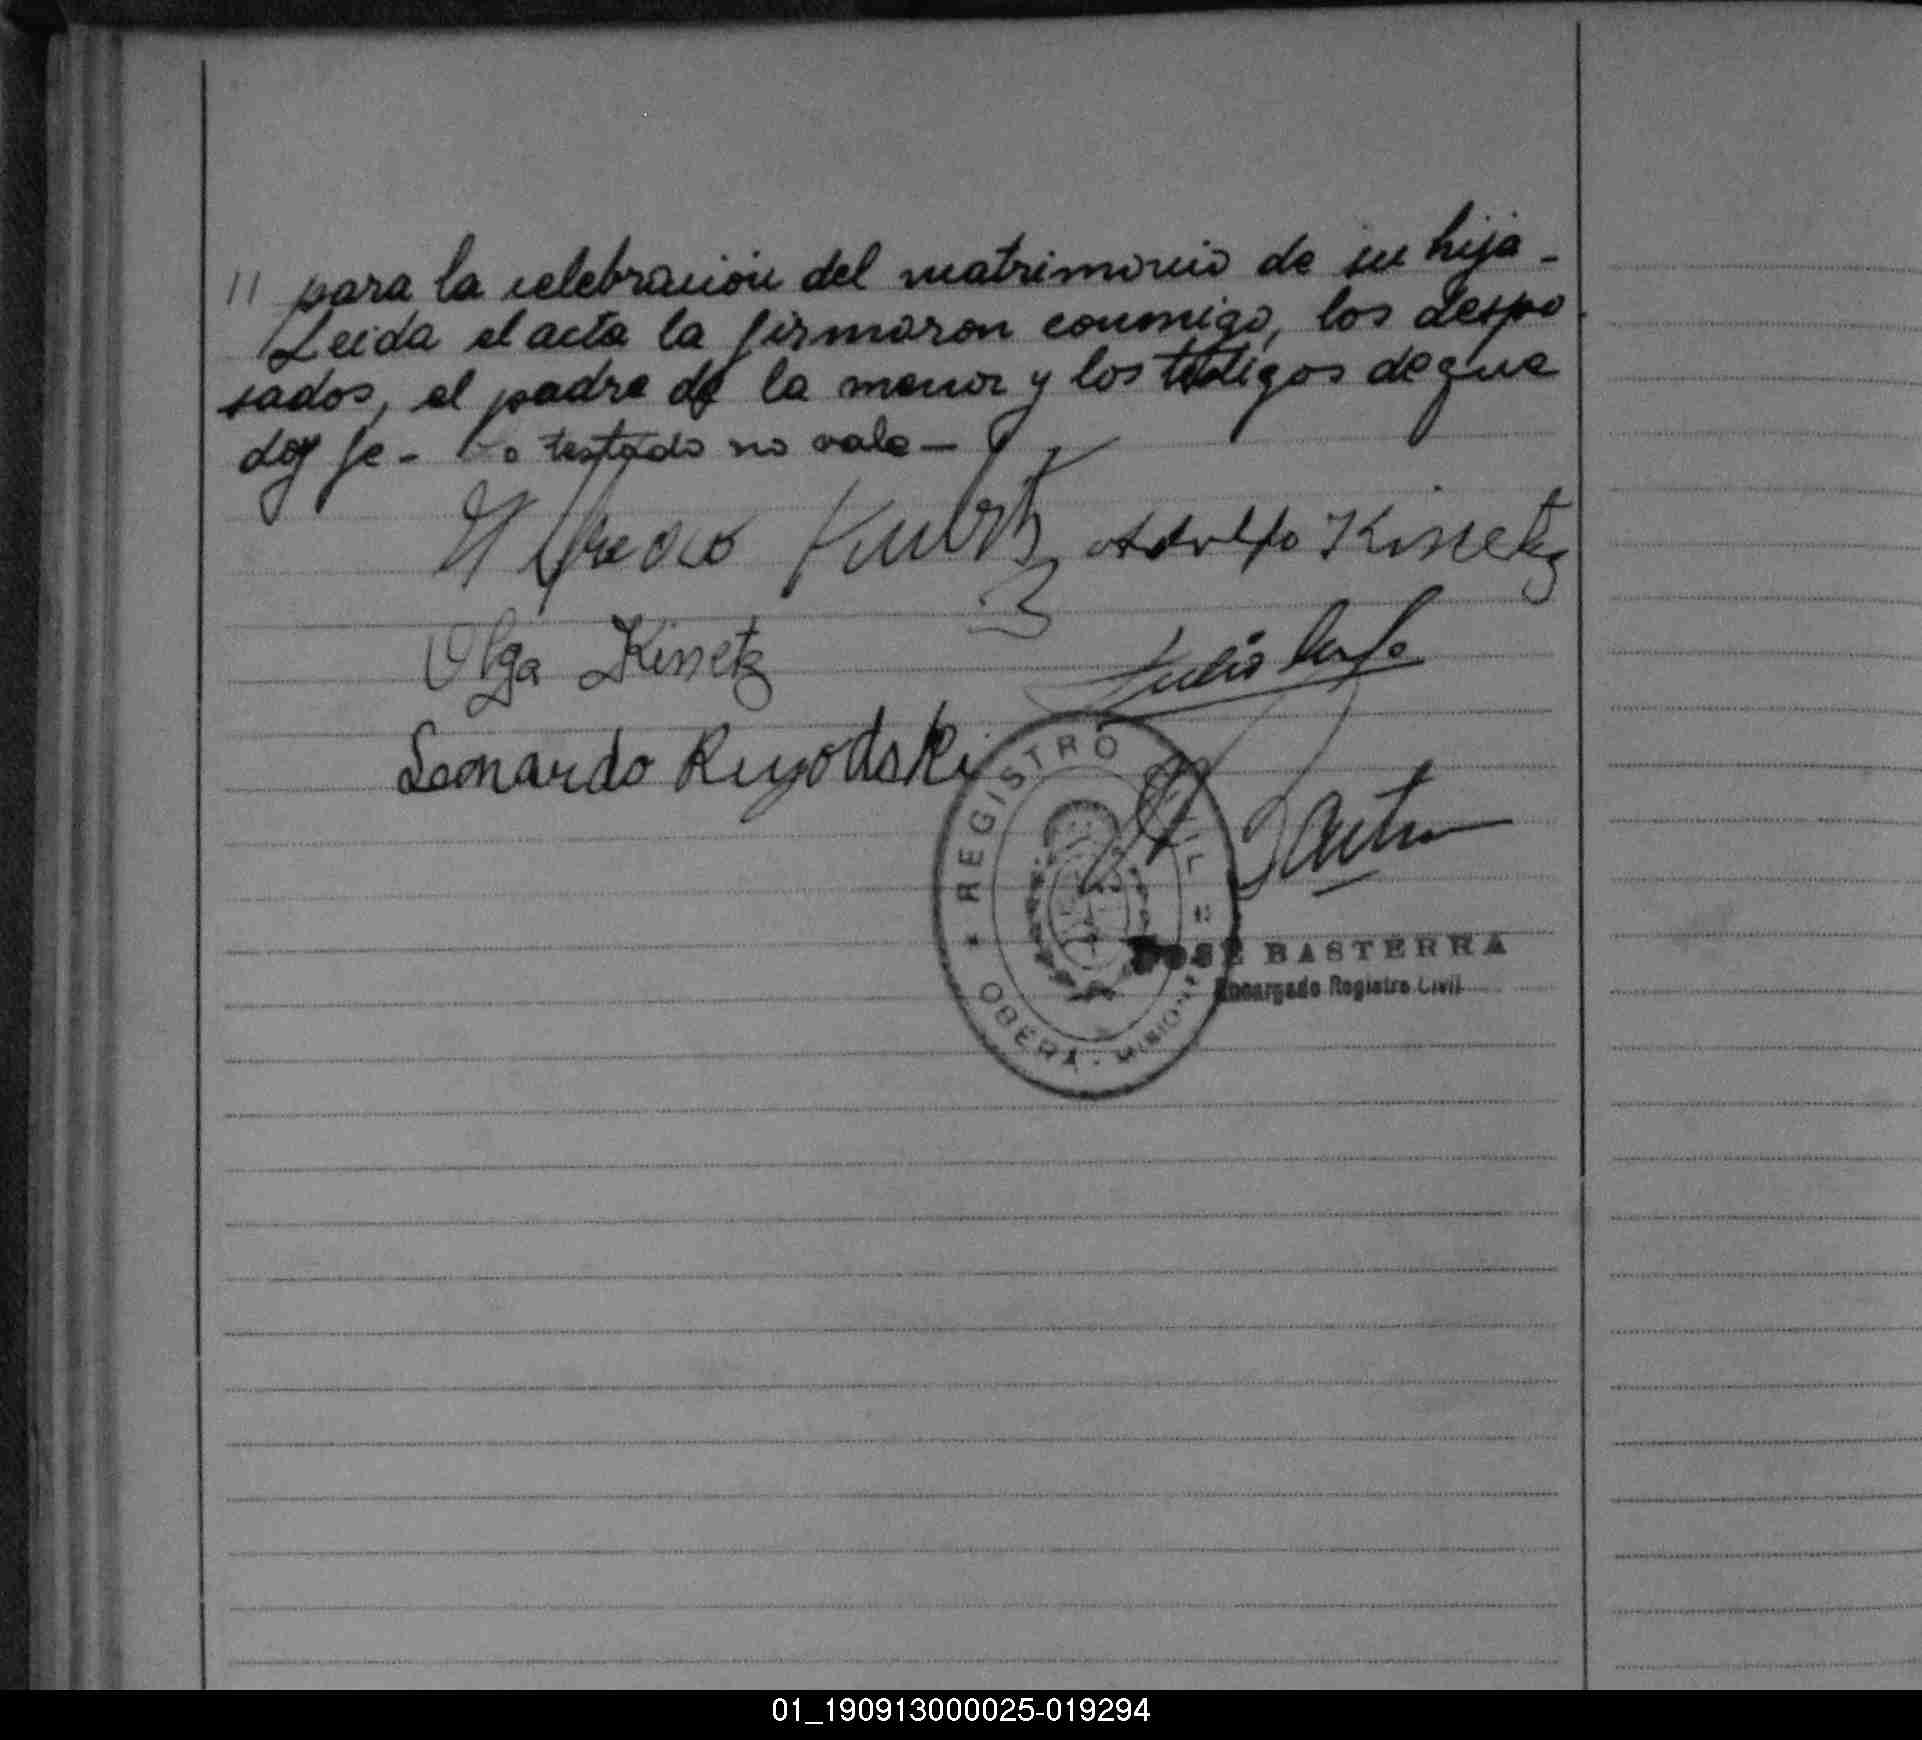 // para la celebración del matrimonio de su hija -
Leida el acta la firmaron conmigo, los despo-
sados, el padre de la menor y los testigos de que
doy fe - Lo testado no vale -
Alfredo Kurtz Adolfo Kissetz
Olga Kissetz
Julio
Leonardo Ruyodski
REGISTRO CIVIL
OBERÁ - MISIONES
JOSÉ BASTERRA
Encargado Registro Civil
01_190913000025-019294